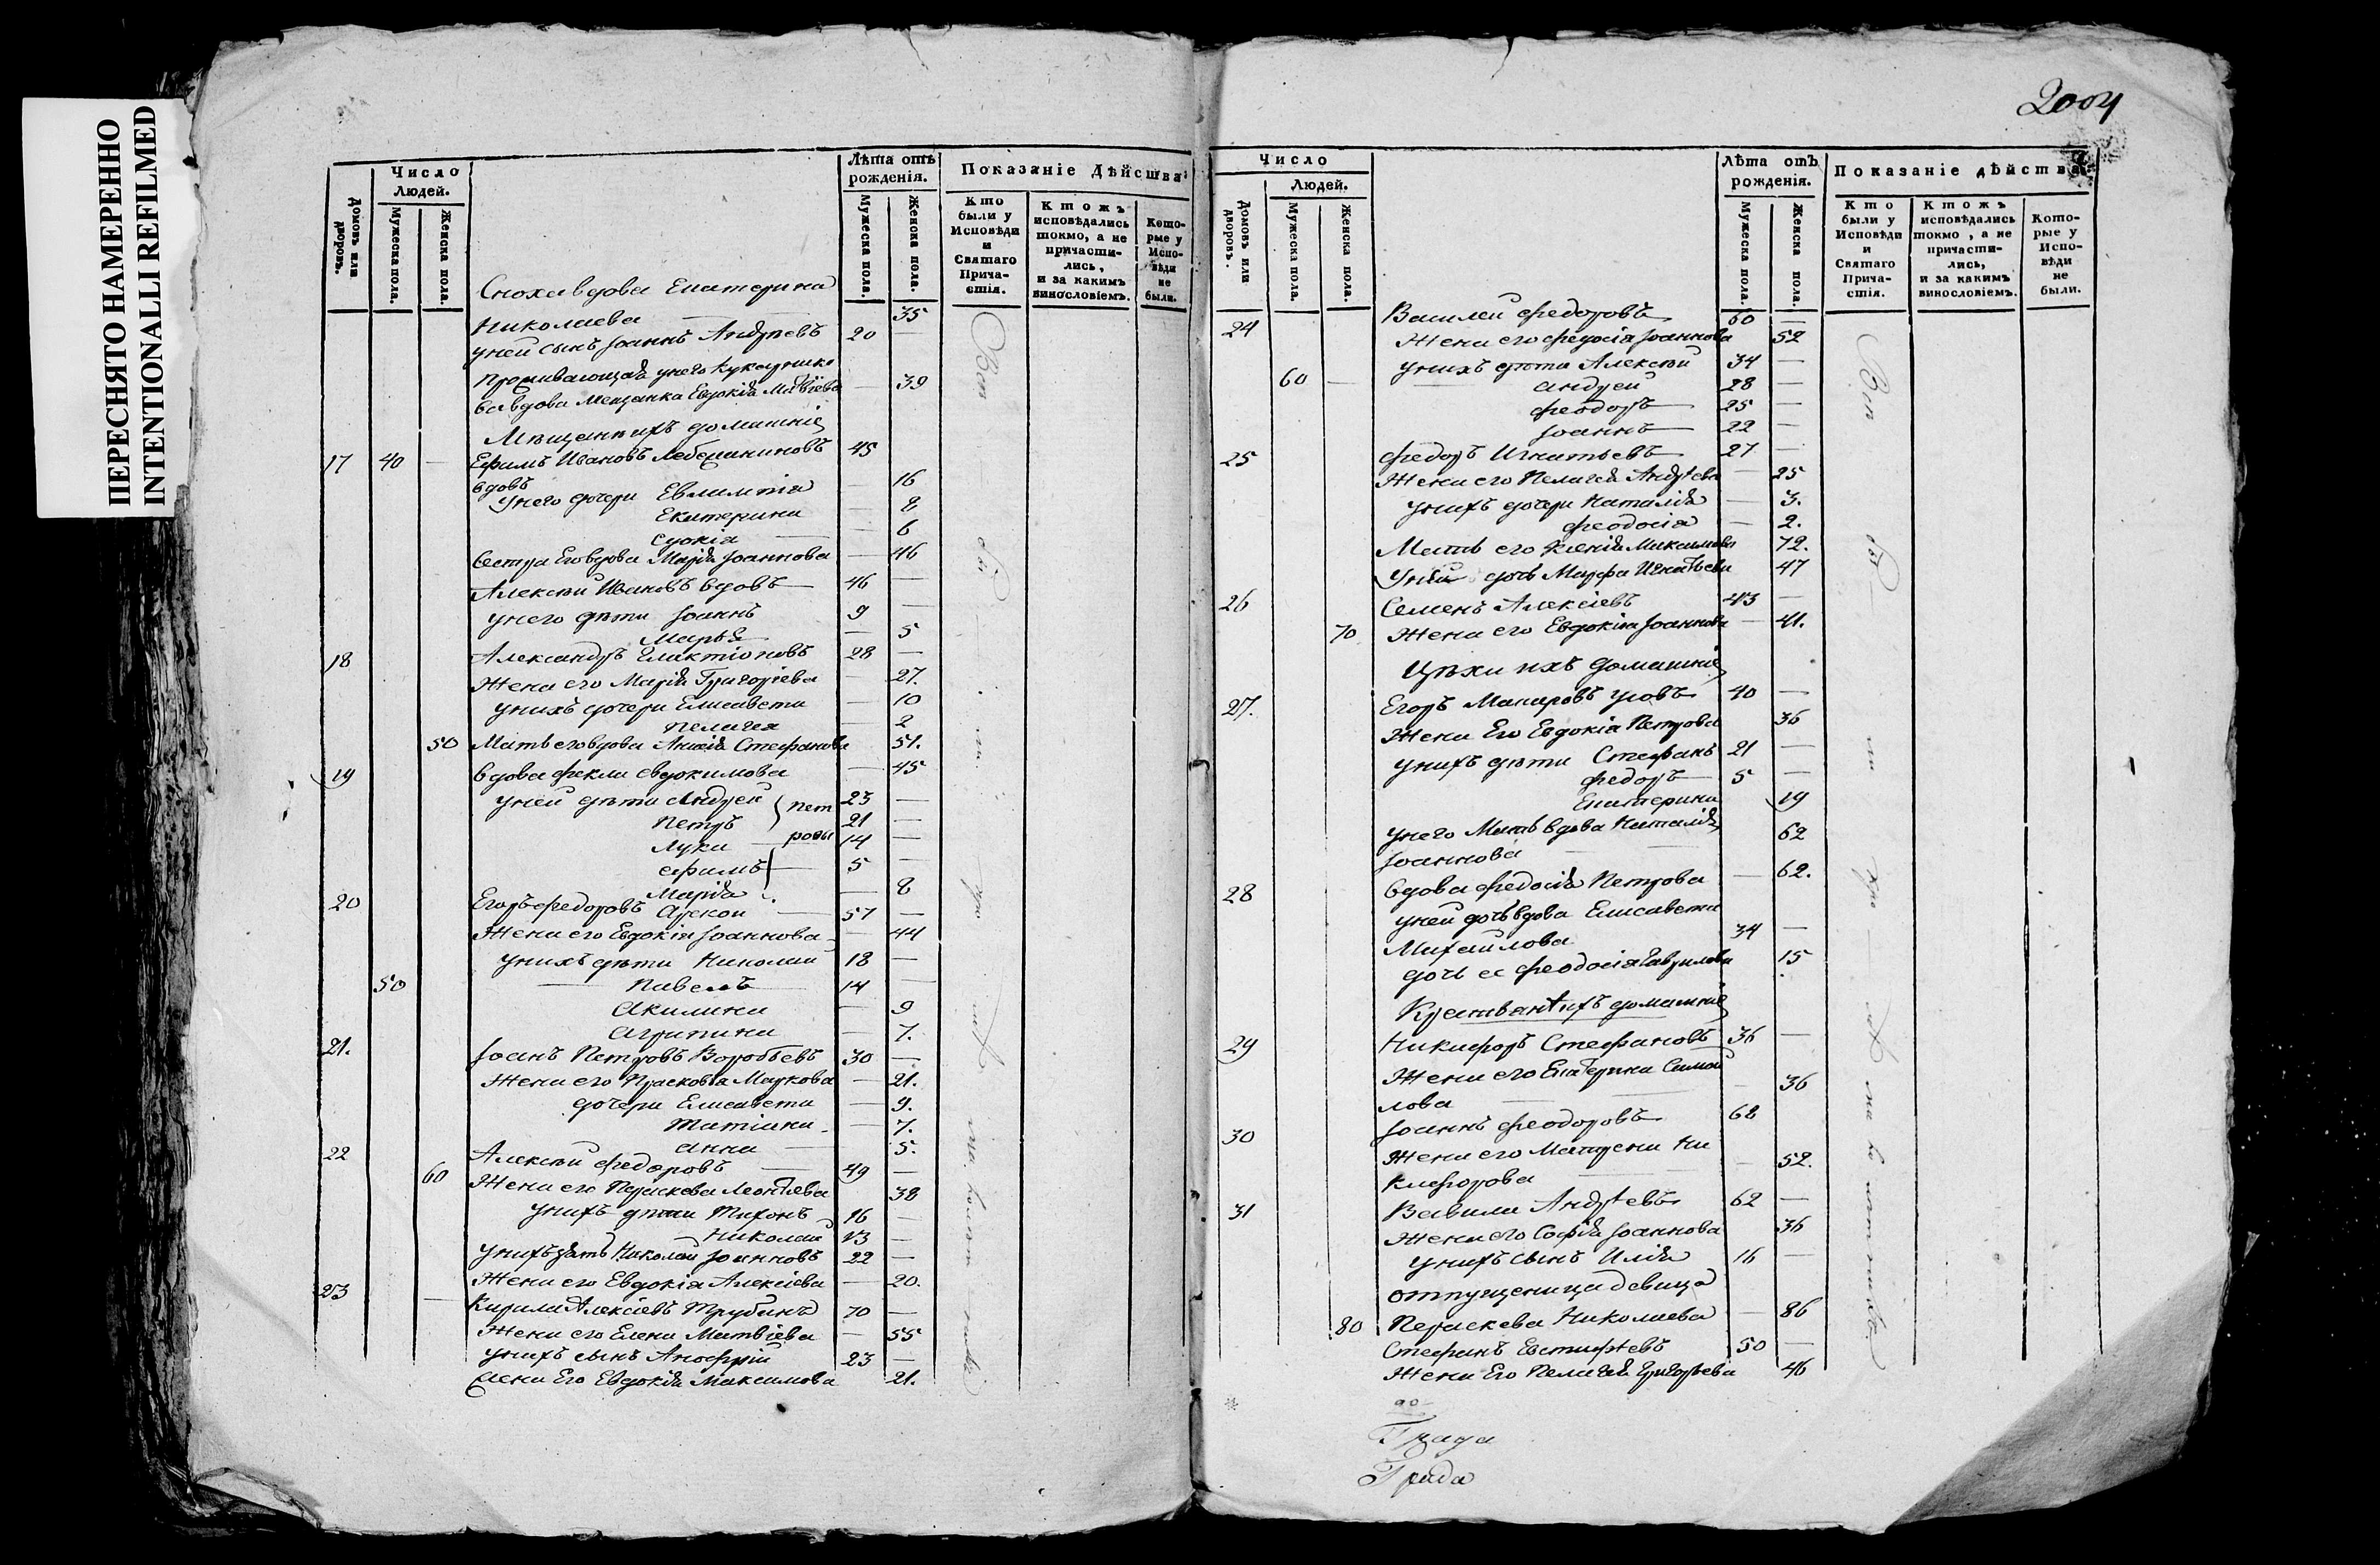 ПЕРЕСНЯТО НАМЕРЕННО
INTENTIONALLI REFILMED
Число Людей.
Лѣта отъ рожденія.
Показаніе Дѣйства
Домовъ или дворовъ.
Мужеска пола.
Женска пола.
Мужеска пола.
Женска пола.
Кто были у Исповѣди и Святаго Причастія.
Ктожъ исповѣдались токмо, а не причастились, и за какимъ винословіемъ.
Которые у Исповѣди не были.
Сноха вдова Екатерина
Николаева — 35
У ней сынъ Іоаннъ Андреевъ 20
вдова мещанка Евдокія 39
Мѣщане и ихъ домашніе
17 40 — Ефимъ Ивановъ 45
вдовъ
У него дочери Евлампія — 16
Екатерина — 8
Едокія — 6
Сестра Его вдова Марія Іоаннова — 46
Алексѣй Ивановъ вдовъ — 46 —
У него дѣти Іоаннъ 9 —
Марья — 5
18 Александръ Галактіоновъ 28 —
Жена его Марія Григоріева — 27.
У нихъ дочери Елисавета — 10
Пелагея — 2
50 Мать его вдова Стефанова 51.
19 Вдова Фекла Евдокимова — 45
У ней дѣти Андрей 23 —
Петръ 21 —
Петровы
Лука 14 —
Ефимъ 5 —
Марія — 8
20 Егоръ Федоровъ 57 —
Жена его Евдокія Іоаннова — 44
У нихъ дѣти Николай 18 —
50 Павелъ 14 —
Акилина — 9
Агрипина — 7.
21. Іоанъ Петровъ Воробьевъ 30 —
Жена его Прасковья Маркова — 21.
дочери Елисавета — 9.
Татіана — 7.
Анна — 5.
22 Алексѣй Федоровъ — 49 —
60 Жена его Параскева Леонтьева 38
У нихъ дѣти Тихонъ 16 —
Николай 13 —
У нихъ зять Николай Іоанновъ 22 —
Жена его Евдокія Алексіева — 20.
23 Кирила Алексіевъ Трубинъ 70 —
Жена его Елена Матвіева — 55
У нихъ сынъ Анофрій 23 —
Жена Его Евдокія Максимова 21.
2004
Число Людей.
Лѣта отъ рожденія.
Показаніе дѣйства
Домовъ или дворовъ.
Мужеска пола.
Женска пола.
Мужеска пола.
Женска пола.
Кто были у Исповѣди и Святаго Причастія.
Ктожъ исповѣдались токмо, а не причастились, и за какимъ винословіемъ.
Которые у Исповѣди не были.
24 Василей Федоровъ 60 —
Жена его Федосія Іоаннова 52
У нихъ дѣти Алексѣй 34 —
60 — Андрей 28 —
Феодоръ 25 —
Іоаннъ 22 —
25 Федоръ Игнатьевъ 27 —
Жена его Пелагея Андреева — 25
У нихъ дочери Наталія — 3.
Феодосія — 2.
Мать его Ксенія Максимова 72.
У ней дочь Марфа Игнатьева 47
26 Семенъ Алексіевъ 43 —
70 Жена его Евдокія Іоаннова — 41.
Цѣхи ихъ домашніе
27. Егоръ Макаровъ 40 —
Жена Его Евдокія Петрова 36
У нихъ дѣти Стефанъ 21 —
Федоръ 5 —
Екатерина 19
У него Мать вдова Наталія
Іоаннова 62
28 Вдова Федосія Петрова — 62.
У ней дочь вдова Елисавета
Михайлова 34 —
дочь ее Феодосія Гаврилова 15
и ихъ домашніе
29 Никифоръ Стефановъ 36 —
Жена его Екатерина
лова — 36
30 Іоаннъ Феодоровъ 68
Жена его Матрена Ни
кифорова — 52.
31 Вавила Андреевъ 62 —
Жена его Софія Іоаннова 36
У нихъ сынъ Илія 16 —
отпущеница девица
80 Параскева Николаева — 86
Стефанъ Евстифѣевъ 50 —
Жена Его Пелагея Григорьева 46